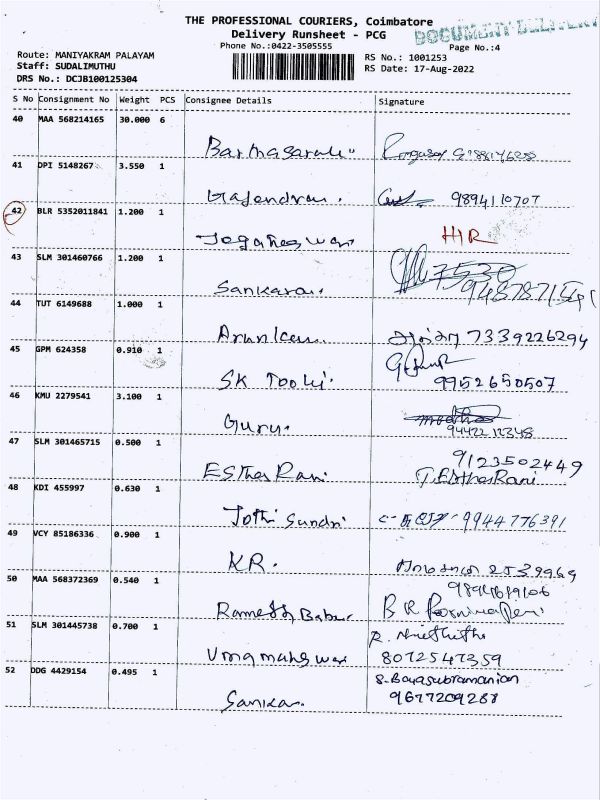 THE PROFESSIONAL COURIERS, Coimbatore
DOCUMENT DELIVERY
Delivery Runsheet - PCG
Phone No.:0422-3505555
Page No.:4
Route: MANIYAKRAM PALAYAM
RS No.: 1001253
Staff: SUDALIMUTHU
RS Date: 17-Aug-2022
DRS No.: DCJB100125304
S No Consignment No Weight PCS Consignee Details Signature
40 MAA 568214165 30.000 6
41 DPI 5148267 3.550 1
Gajendran. 9894110707
42 BLR 5352011841 1.200 1
Jeganeswari H/R
43 SLM 301460766 1.200 1
7530
Sankaran.
44 TUT 6149688 1.000 1
Arunkum 7339226294
45 GPM 624358 0.910 1
SK Tools. 9952650507
46 KMU 2279541 3.100 1
Guru.
47 SLM 301465715 0.500 1
9123502449
Esther Rani T. Esther Rani
48 KDI 455997 0.630 1
Jothi Sundri 9944776391
49 VCY 85186336 0.900 1
KR. 2539969
50 MAA 568372369 0.540 1
Ramesh Babu B R
51 SLM 301445738 0.700 1
Umamaheswari 8072547359
52 DDG 4429154 0.495 1
S. Balasubramanian
Sankar 9677209288